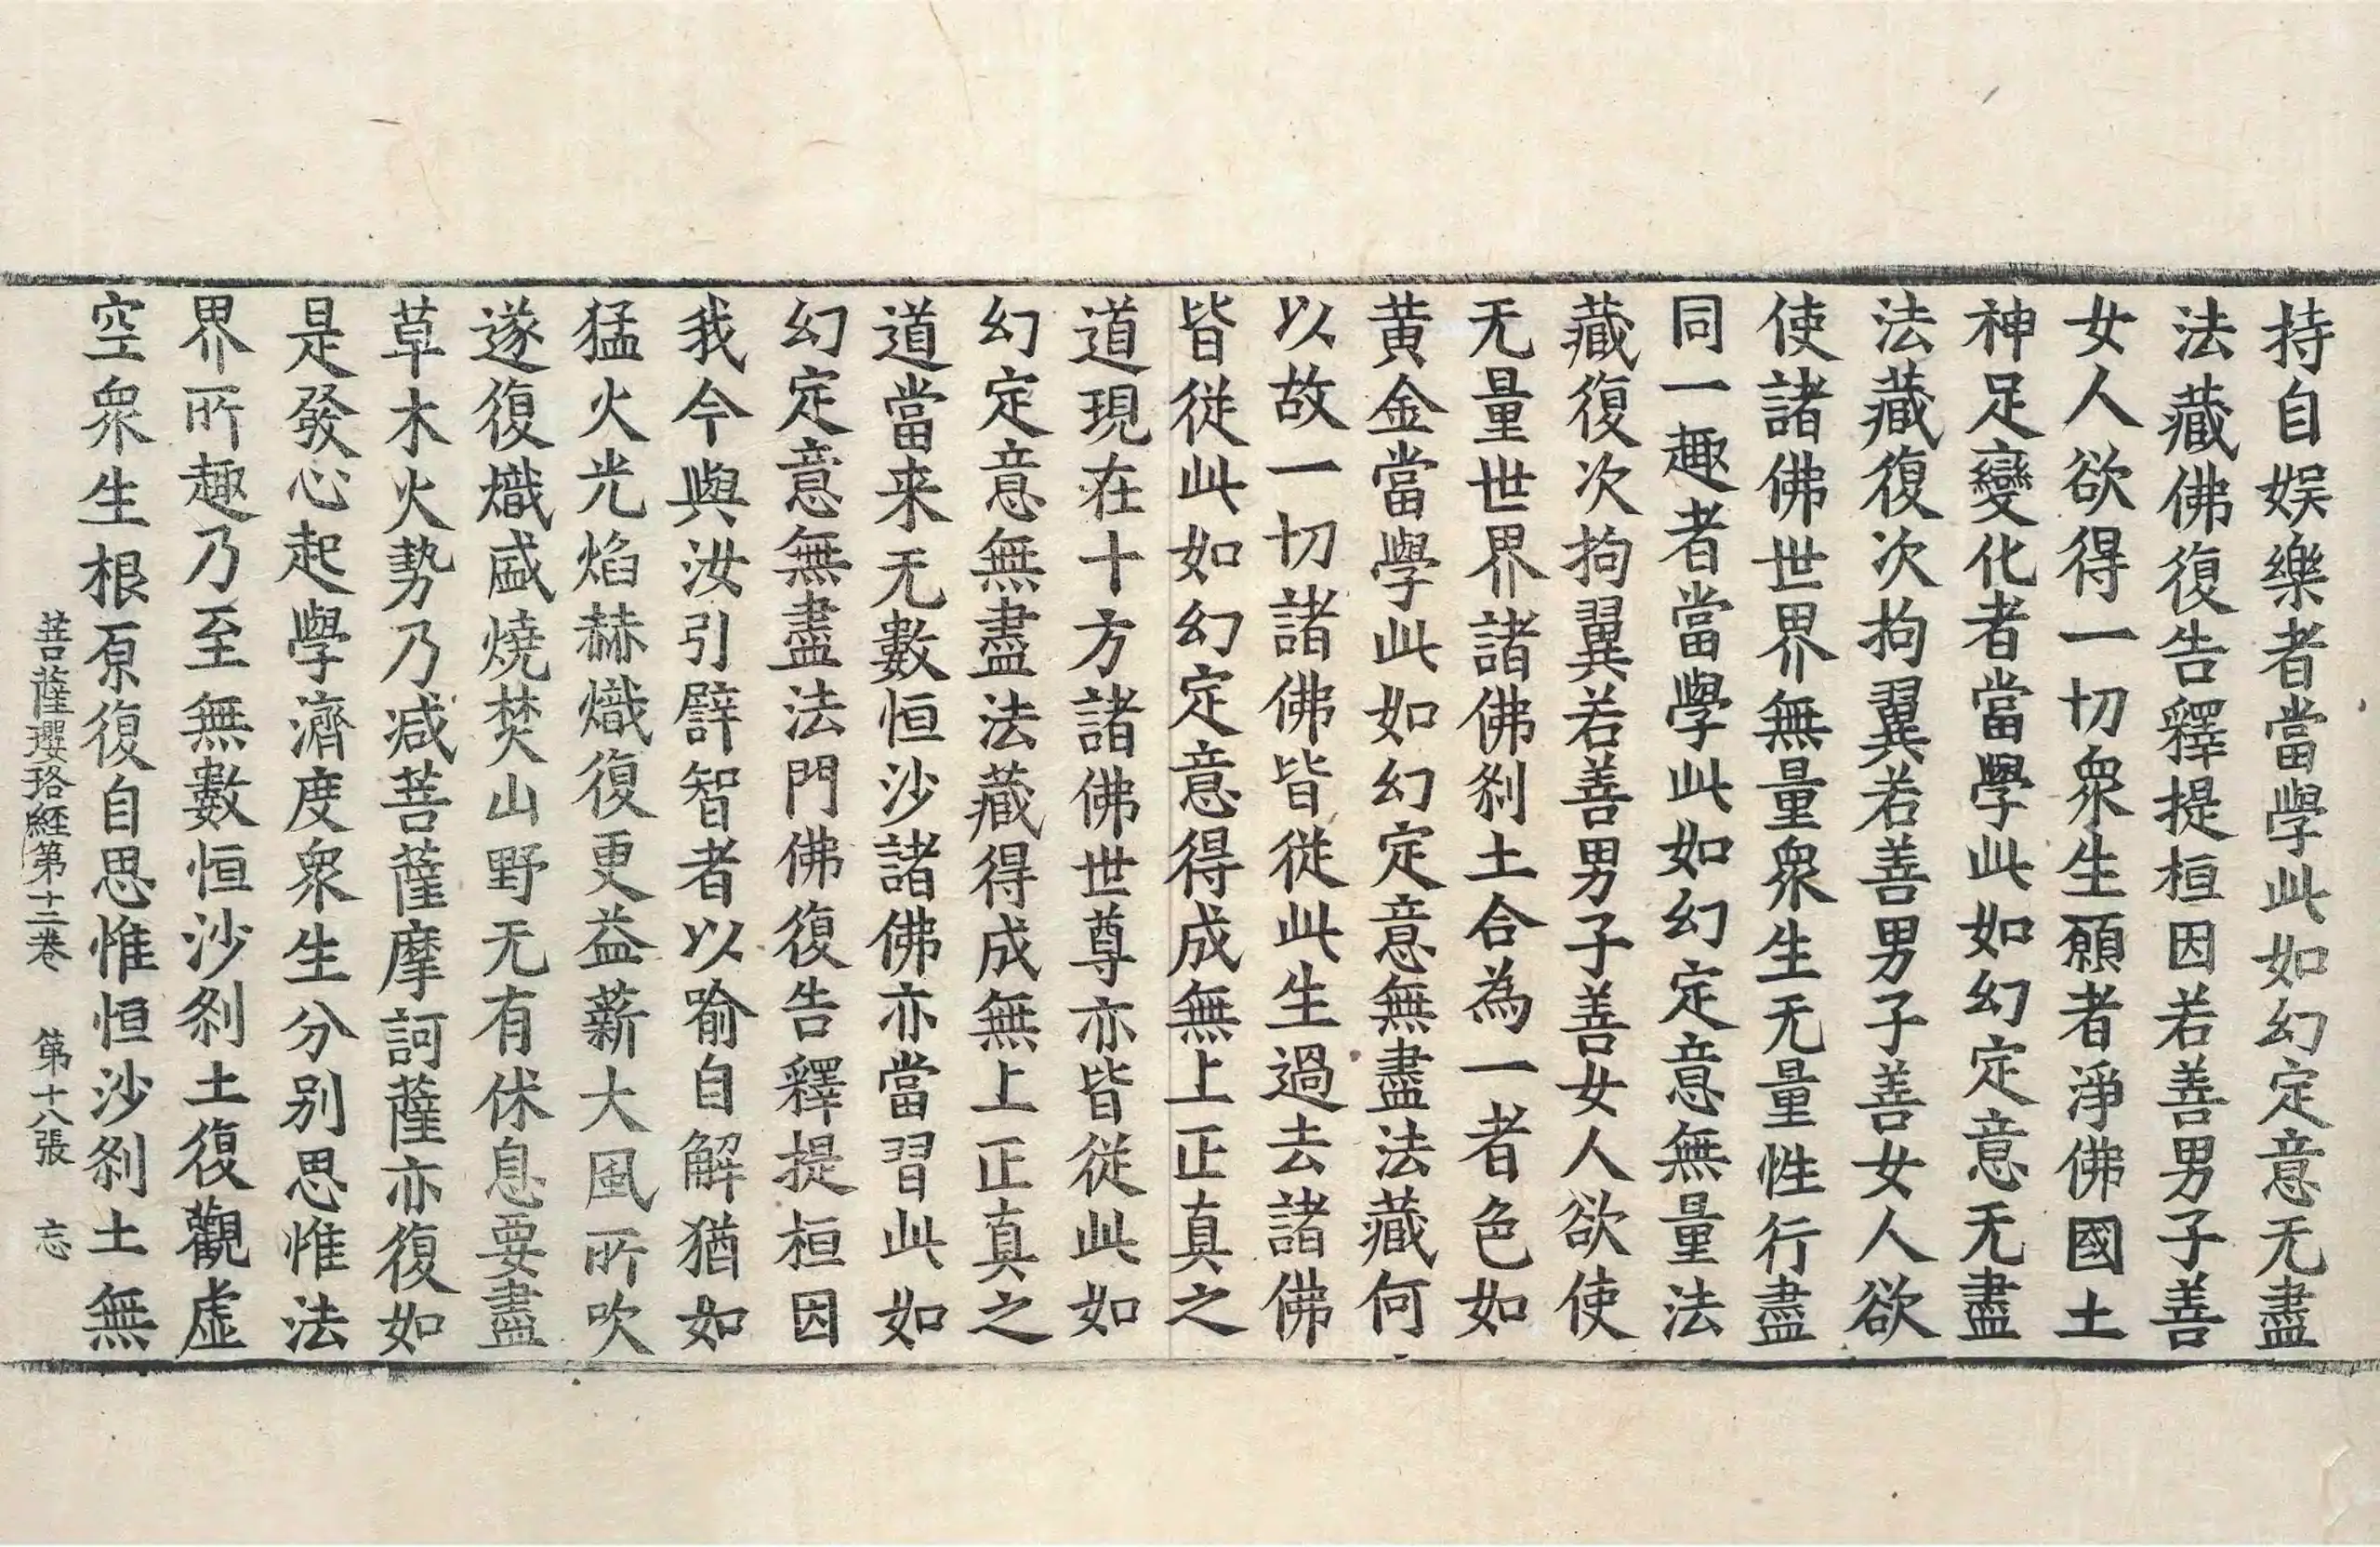 持自娛樂者當學此如幻定意无盡
法藏佛復告釋提桓因若善男子善
女人欲得一切衆生願者淨佛國土
神足變化者當學此如幻定意无盡
法藏復次拘翼若善男子善女人欲
使諸佛世界無量衆生无量性行盡
同一趣者當學此如幻定意無量法
藏復次拘翼若善男子善女人欲使
无量世界諸佛刹土合為一者色如
黄金當學此如幻定意無盡法藏何
以故一切諸佛皆從此生過去諸佛
皆從此如幻定意得成無上正真之
道現在十方諸佛世尊亦皆從此如
幻定意無盡法藏得成無上正真之
道當来无數恒沙諸佛亦當習此如
幻定意無盡法門佛復告釋提桓因
我今與汝引譬智者以喻自解猶如
猛火光焰赫熾復更益薪大風所吹
遂復熾盛燒焚山野无有休息要盡
草木火勢乃减菩薩摩訶薩亦復如
是發心起學濟度衆生分别思惟法
界所趣乃至無數恒沙刹土復觀虚
空衆生根原復自思惟恒沙刹土無
菩薩瓔珞經第十二卷 第十八張 忘